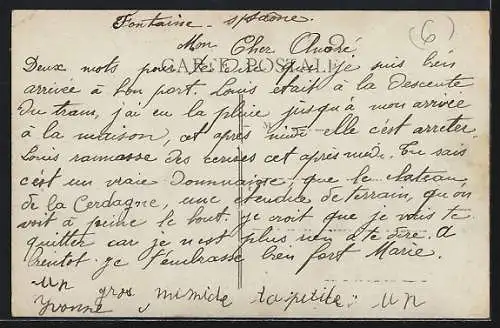 Fontaine - s/Saône.
(6)
Mon Cher André.
CARTE POSTALE
Deux mots pour te dire que je suis bien
arrivée à bon port. Louis était à la descente
du tram, j'ai eu la pluie jusqu'à mon arrivée
à la maison, et après midi elle c'est arreter
Louis ramasse des cerises cet après midi. Tu sais
c'est un vraie que le plateau
de la Cerdagne, une étendue de terrain, qu'on
voit à peine le bout. je croit que je vais te
quitter car je n'est plus rien a te dire. A
bientot. je t'embrasse bien fort Marie.
un gros mimide ta petite : un
Yvonne